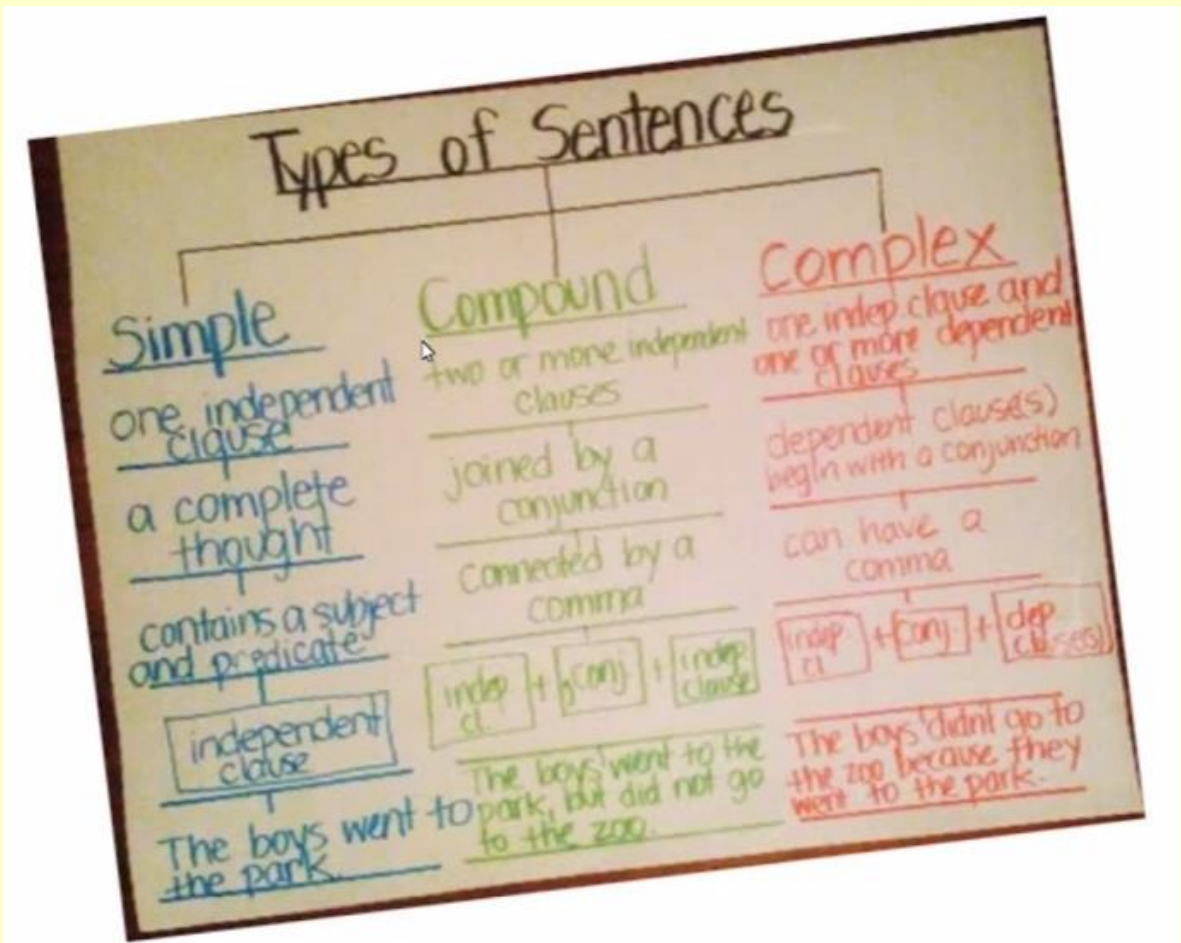 Types of Sentences
Simple
one independent
clause
a complete
thought
contains a subject
and predicate
independent
clause
The boys went to
the park.
Compound
two or more independent
clauses
joined by a
conjunction
connected by a
comma
indep
cl.
+
, conj.
+
indep
clause
The boys went to the
park, but did not go
to the zoo.
Complex
one indep clause and
one or more dependent
clauses
dependent clause(s)
begin with a conjunction
can have a
comma
indep
cl.
+
conj.
+
dep
clause(s)
The boys didn't go to
the zoo because they
went to the park.